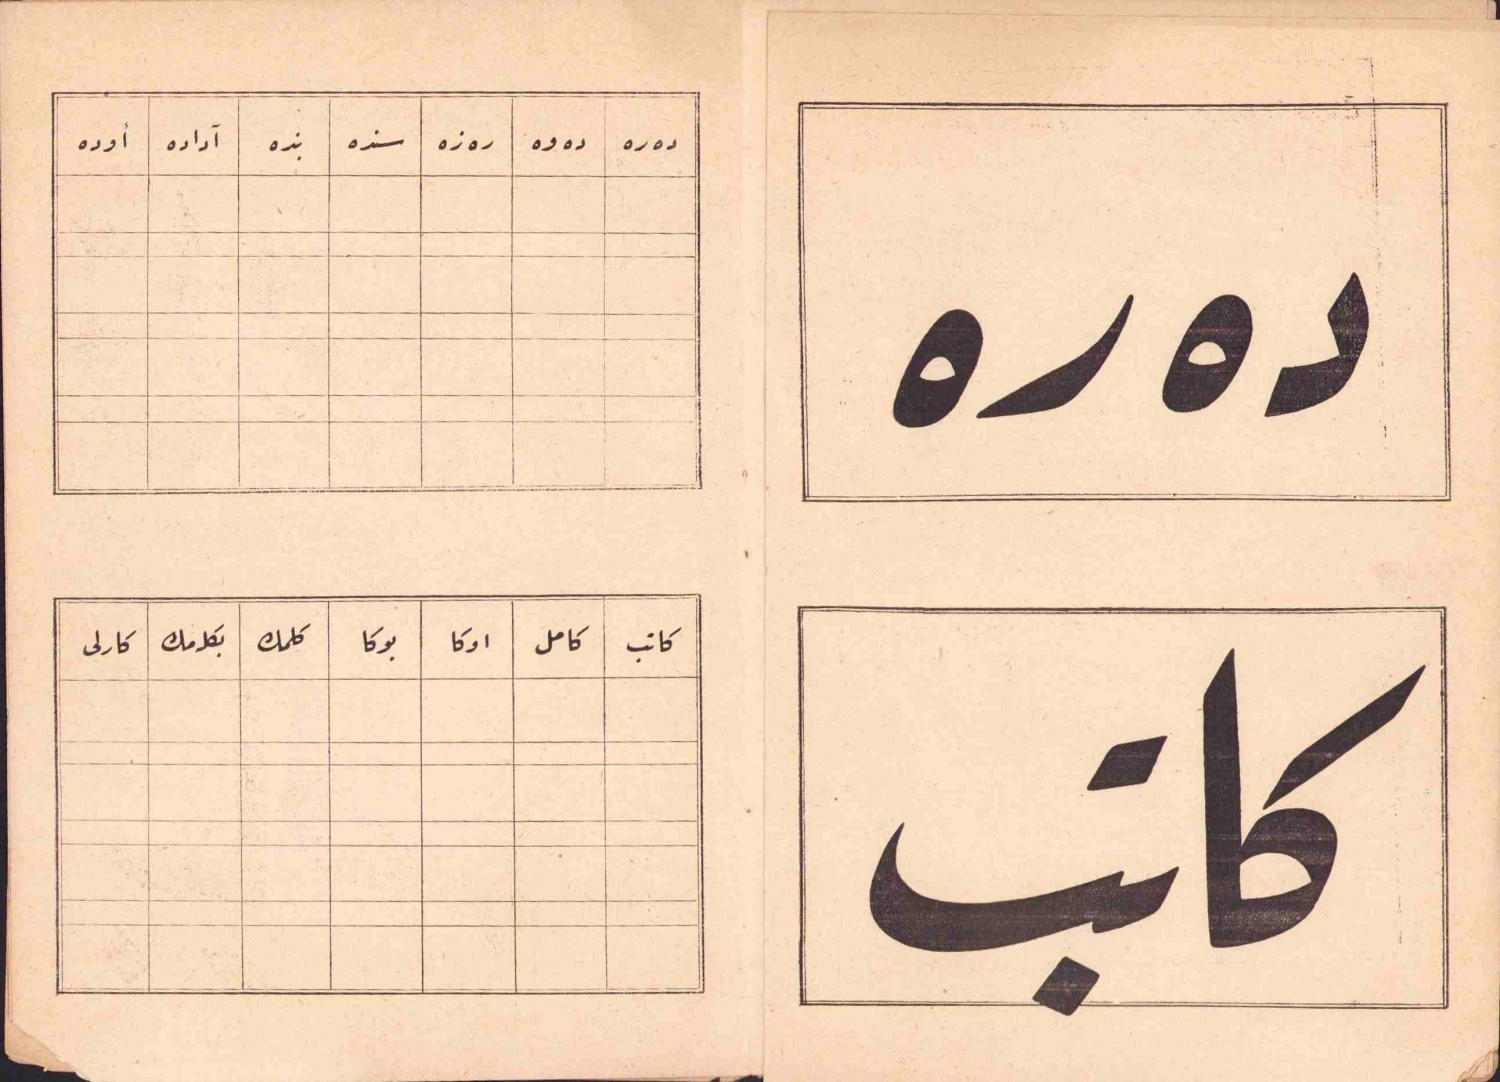 ده ره
كاتب
ده ره ده وه ره زه سنده بنده آداده أوده
كاتب كامل اوكا بوكا كلمك بكلمك كارلى